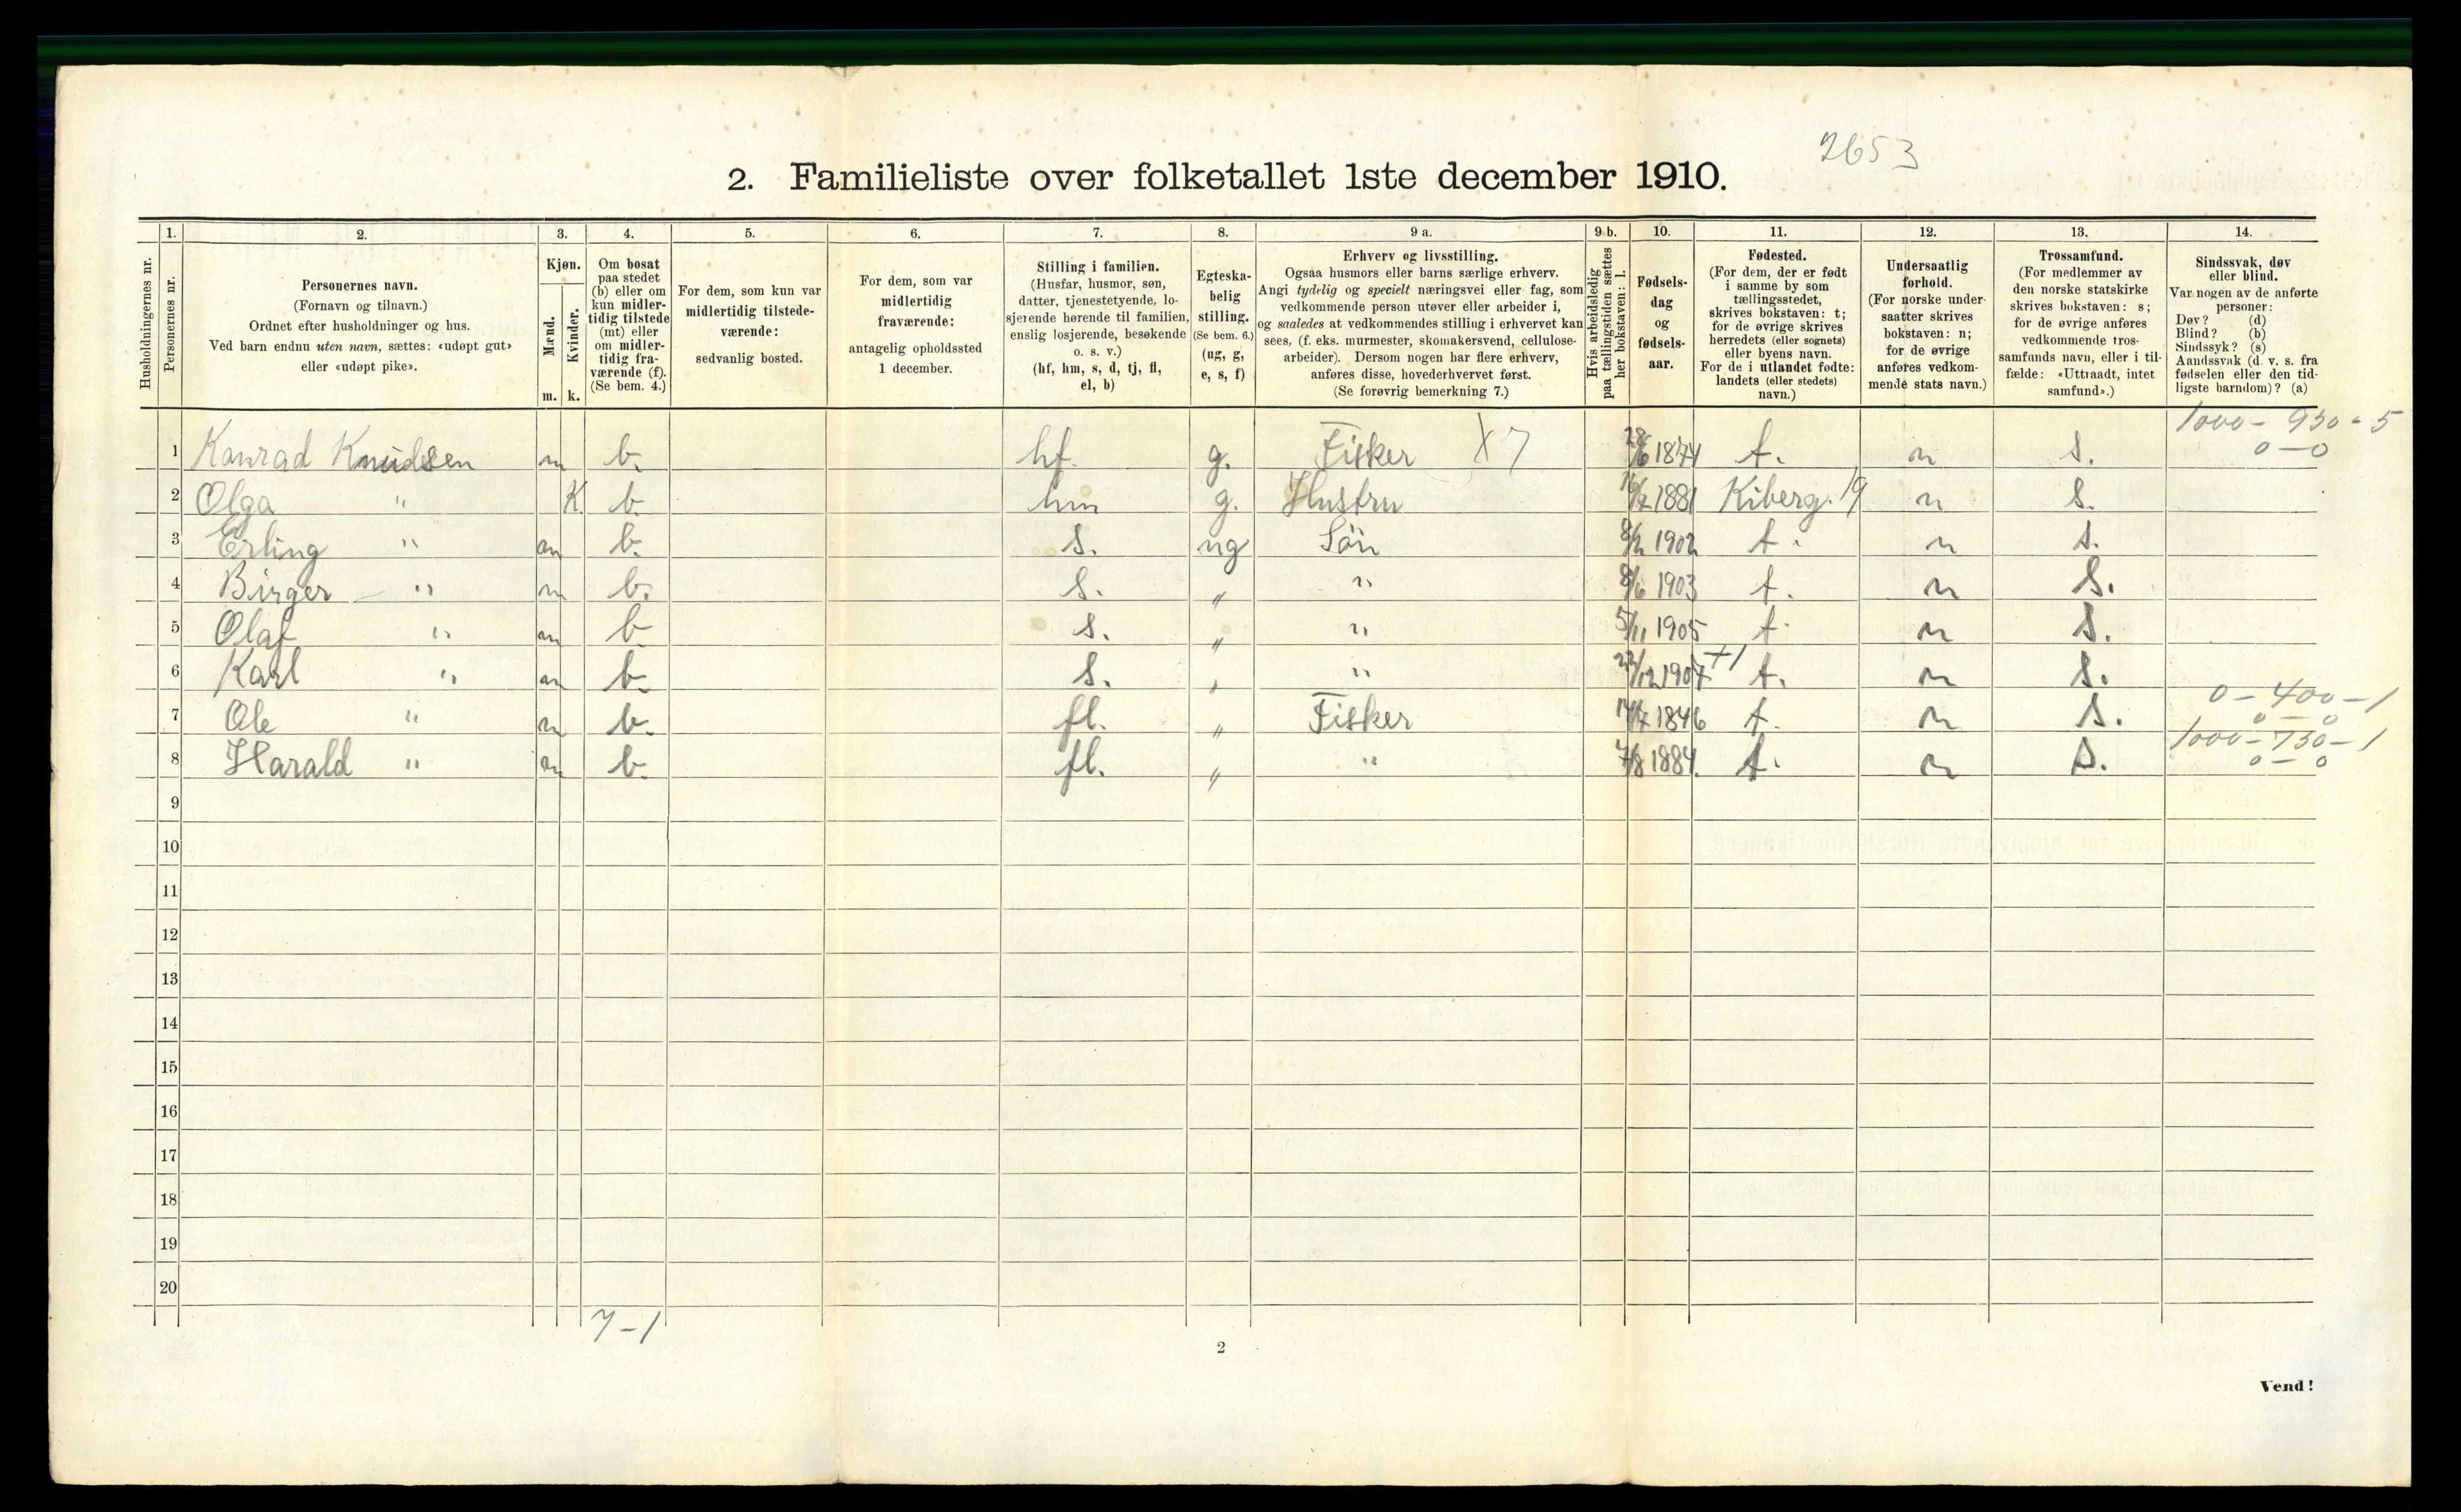 2653
2. Familieliste over folketallet 1ste december 1910.
1. 2. 3. 4. 5. 6. 7. 8. 9 a. 9 b. 10. 11. 12. 13. 14.
Husholdningernes nr.
Personernes nr.
Personernes navn.
(Fornavn og tilnavn.)
Ordnet efter husholdninger og hus.
Ved barn endnu uten navn, sættes: «udøpt gut»
eller «udøpt pike».
Kjøn.
Mænd.
Kvinder.
m. k.
Om bosat
paa stedet
(b) eller om
kun midler-
tidig tilstede
(mt) eller
om midler-
tidig fra-
værende (f).
(Se bem. 4.)
For dem, som kun var
midlertidig tilstede-
værende:
sedvanlig bosted.
For dem, som var
midlertidig
fraværende:
antagelig opholdssted
1 december.
Stilling i familien.
(Husfar, husmor, søn,
datter, tjenestetyende, lo-
sjerende hørende til familien,
enslig losjerende, besøkende
o. s. v.)
(hf, hm, s, d, tj, fl,
el, b)
Egteska-
belig
stilling.
(Se bem. 6.)
(ug, g,
e, s, f)
Erhverv og livsstilling.
Ogsaa husmors eller barns særlige erhverv.
Angi tydelig og specielt næringsvei eller fag, som
vedkommende person utøver eller arbeider i,
og saaledes at vedkommendes stilling i erhvervet kan
sees, (f. eks. murmester, skomakersvend, cellulose-
arbeider). Dersom nogen har flere erhverv,
anføres disse, hovederhvervet først.
(Se forøvrig bemerkning 7.)
Hvis arbeidsledig
paa tællingstiden sættes
her bokstaven: l.
Fødsels-
dag
og
fødsels-
aar.
Fødested.
(For dem, der er født
i samme by som
tællingsstedet,
skrives bokstaven: t;
for de øvrige skrives
herredets (eller sognets)
eller byens navn.
For de i utlandet fødte:
landets (eller stedets)
navn.)
Undersaatlig
forhold.
(For norske under-
saatter skrives
bokstaven: n;
for de øvrige
anføres vedkom-
mende stats navn.)
Trossamfund.
(For medlemmer av
den norske statskirke
skrives bokstaven: s;
for de øvrige anføres
vedkommende tros-
samfunds navn, eller i til-
fælde: «Uttraadt, intet
samfund».)
Sindssvak, døv
eller blind.
Var nogen av de anførte
personer:
Døv? (d)
Blind? (b)
Sindssyk? (s)
Aandssvak (d. v. s. fra
fødselen eller den tid-
ligste barndom)? (a)
1000 - 930 - 5
1 Konrad Knudsen m b. hf. g. Fisker X7 28/6 1874 t. n s. 0-0
2 Olga " K b. hm g. Hustru 1881 Kiberg. 19 n s.
3 Erling " m b. s. ug Søn 8/2 1902 t. n s.
4 Birger " m b. s. " " 8/6 1903 t. n s.
5 Olaf " m b. s. " " 5/11 1905 t. n s.
6 Karl " m b. s. " " /12 1907 +1 t. n s.
0 - 400 - 1
7 Ole " m b. fl. " Fisker 1846 t. n s. 0-0
1000 - 730 - 1
8 Harald " m b. fl. " " 7/8 1884. t. n s. 0-0
9
10
11
12
13
14
15
16
17
18
19
20
7-1
2
Vend!